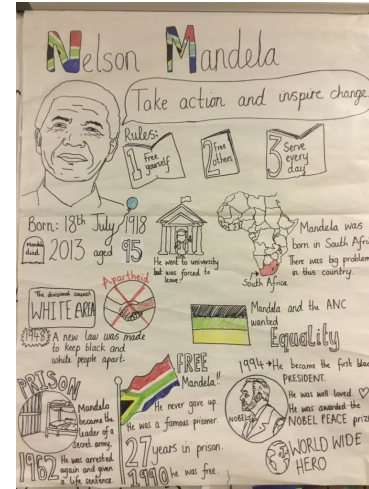 Nelson Mandela
Take action and inspire change
Rules:
1 Free yourself
2 Free others
3 Serve every day
Born: 18th July 1918
Mandela died 2013 aged 95
He went to university
but was forced to
leave!
South Africa
Mandela was
born in South Afri
There was big problem
in this country.
Apartheid
The divisional council
WHITE AREA
1948 A new law was made
to keep black and
white people apart.
Mandela and the ANC
wanted
Equality
PRISON
Mandela
became the
leader of a
secret army.
1962 He was arrested
again and given
a life sentence.
FREE
Mandela!!
He never gave up.
He was a famous prisoner.
27 years in prison.
1990 he was free.
1994 → He became the first blac
PRESIDENT.
He was well loved.
He was awarded the
NOBEL PEACE priz
NOBEL
WORLD WIDE
HERO